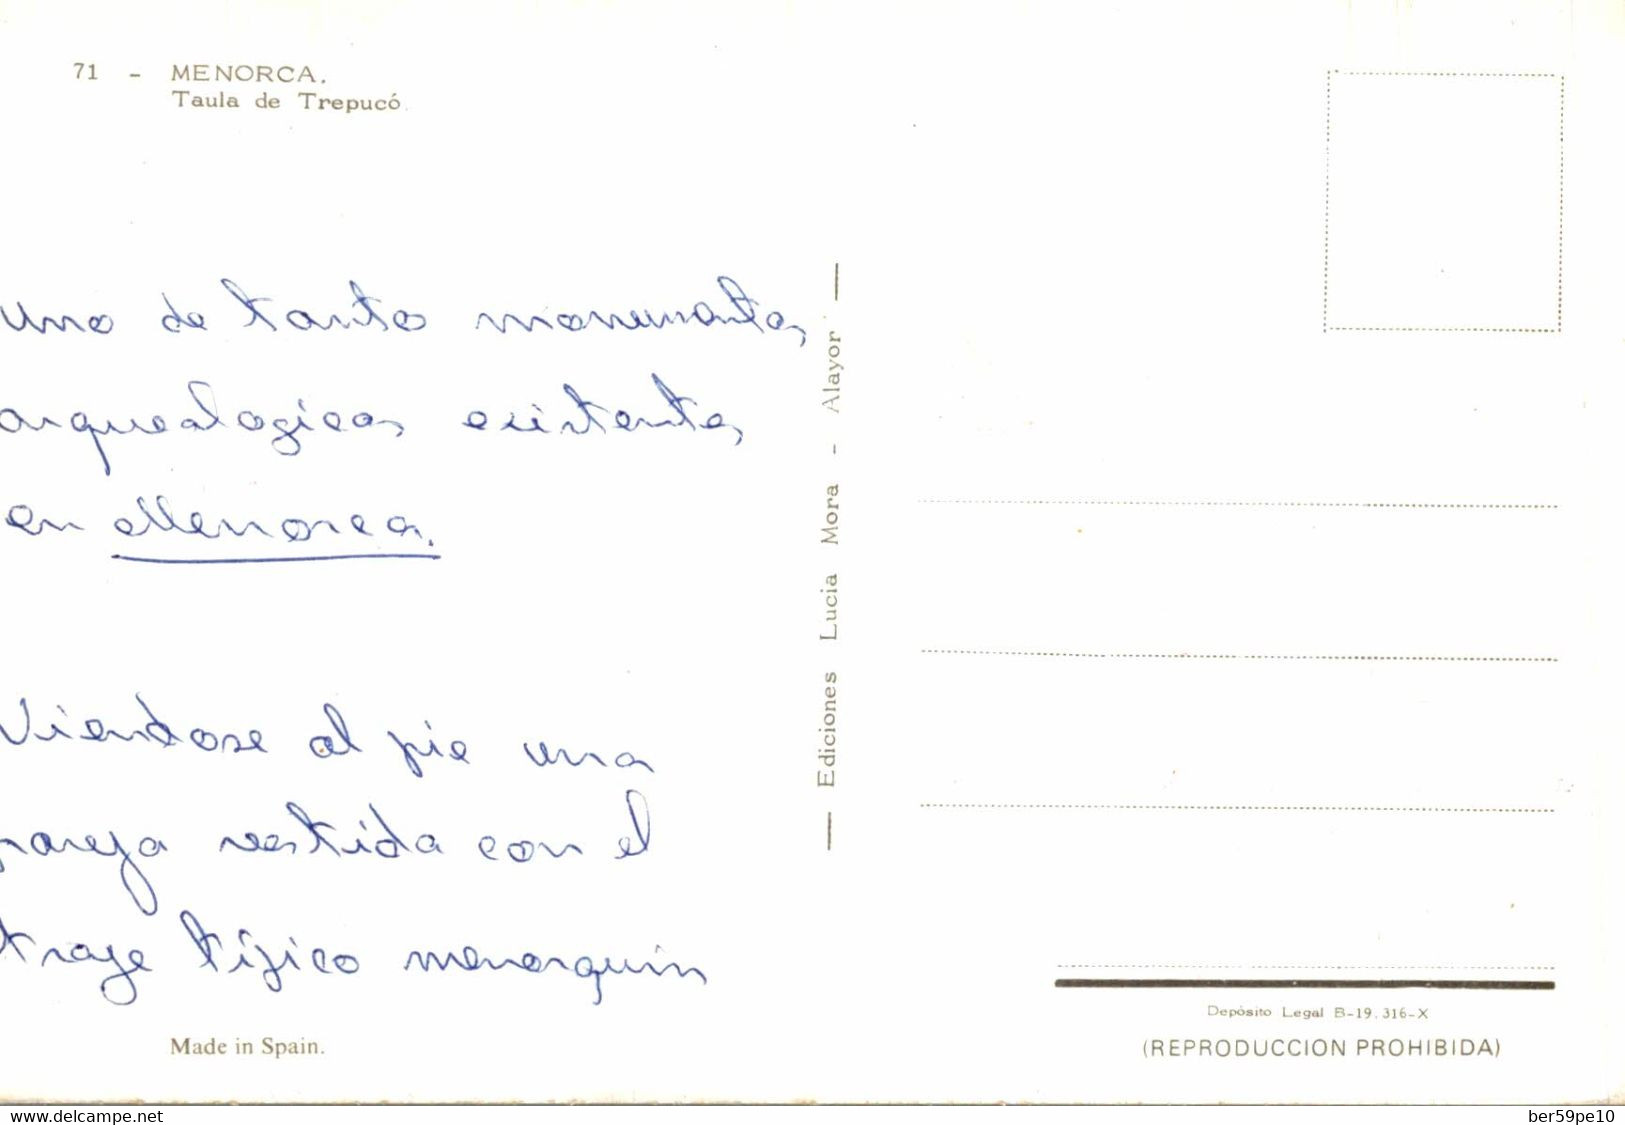 71 - MENORCA.
Taula de Trepucó.
Uno de tantos monumentos
arquealogicos existentes
en Menorca.
Viendose al pie una
pareja vestida con el
traje típico menorquin
Made in Spain.
— Ediciones Lucia Mora - Alayor —
Depósito Legal B-19.316-X
(REPRODUCCION PROHIBIDA)
www.delcampe.net
ber59pe10